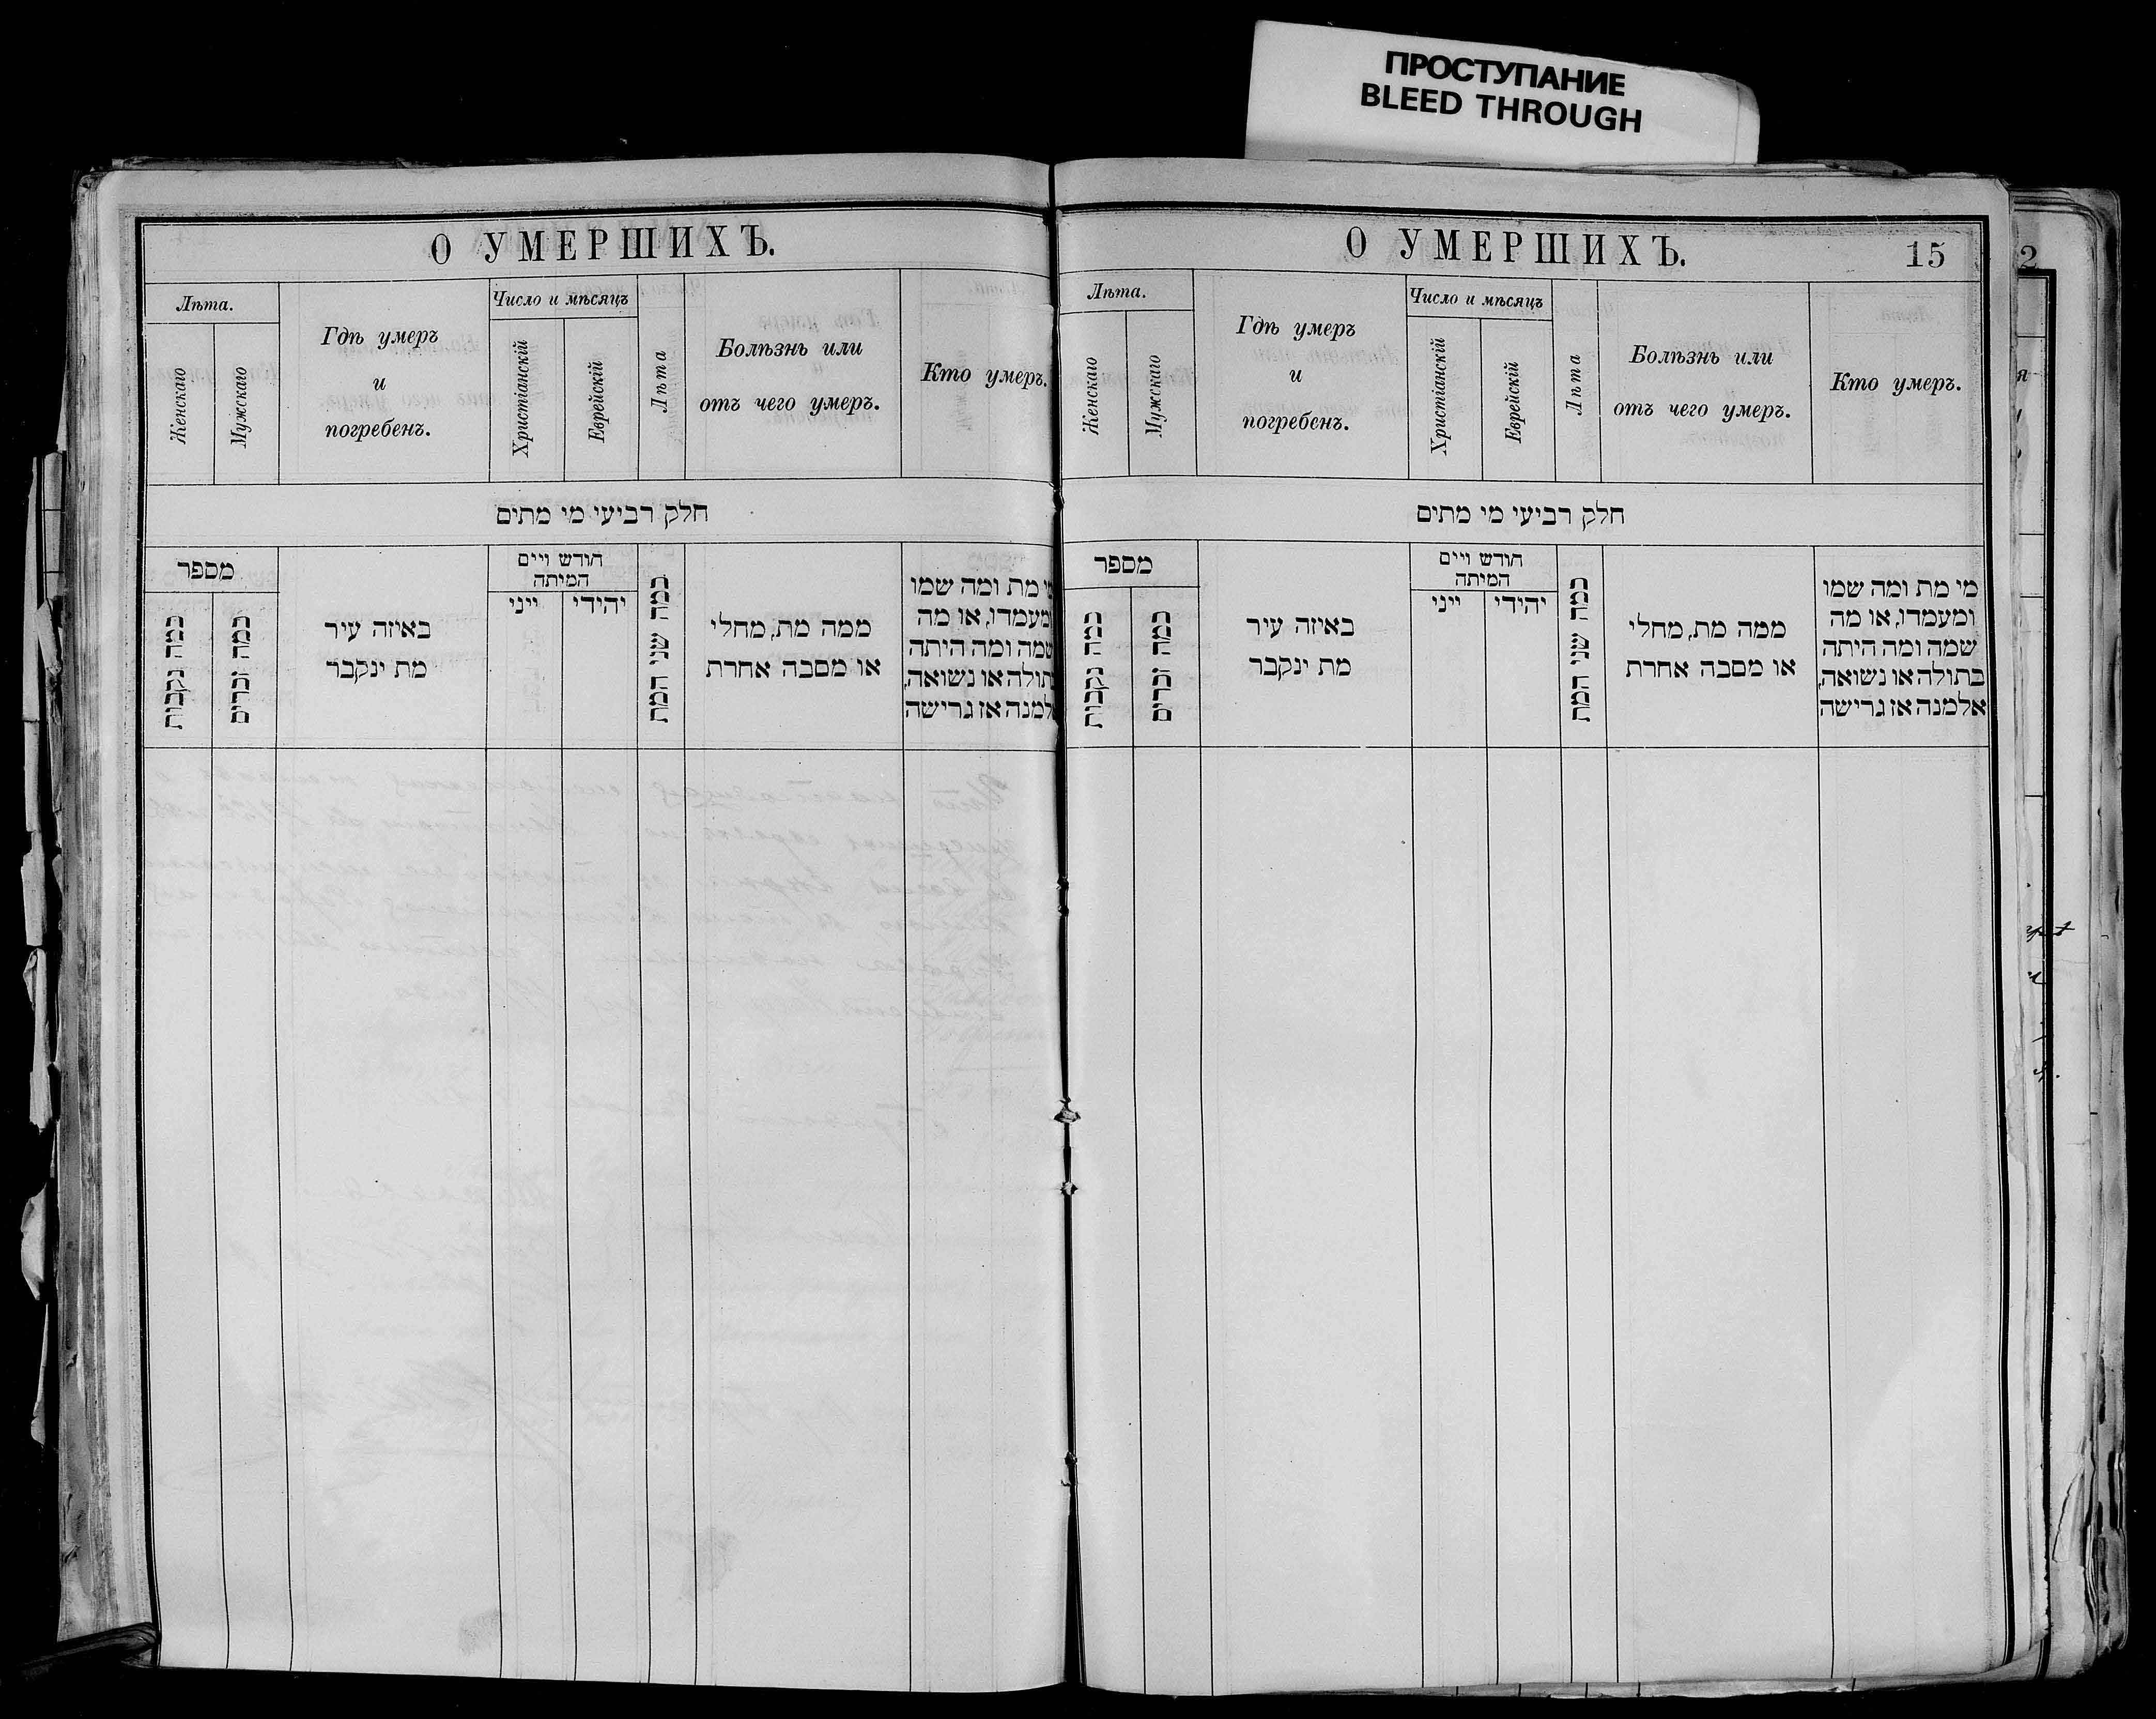 ПРОСТУПАНИЕ
BLEED THROUGH
О УМЕРШИХЪ.
Лѣта.
Женскаго
Мужскаго
Гдѣ умеръ
и
погребенъ.
Число и мѣсяцъ
Христіанскій
Еврейскій
Лѣта
Болѣзнь или
отъ чего умеръ.
Кто умеръ.
חלק רביעי מי מתים
מספר
כמה נקבות
כמה זכרים
באיזה עיר
מת ינקבר
חודש ויים
המיתה
ייני
יהידי
כמה שני המת
ממה מת, מחלי
או מסבה אחרת
מי מת ומה שמו
ומעמדו, או מה
שמה ומה היתה
בתולה או נשואה,
אלמנה אז גרישה
О УМЕРШИХЪ.
15
Лѣта.
Женскаго
Мужскаго
Гдѣ умеръ
и
погребенъ.
Число и мѣсяцъ
Христіанскій
Еврейскій
Лѣта
Болѣзнь или
отъ чего умеръ.
Кто умеръ.
חלק רביעי מי מתים
מספר
כמה נקבות
כמה זכרים
באיזה עיר
מת ינקבר
חודש ויים
המיתה
ייני
יהידי
כמה שני המת
ממה מת, מחלי
או מסבה אחרת
מי מת ומה שמו
ומעמדו, או מה
שמה ומה היתה
בתולה או נשואה,
אלמנה אז גרישה
2